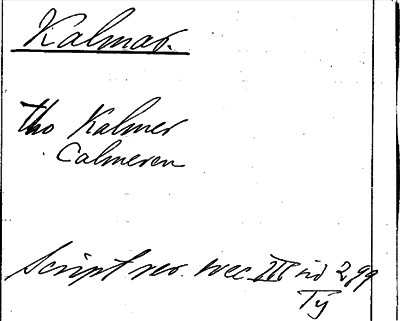 Kalmar.
tho Kalmer
Calmeren
Script rer. svec. III sid 299
Ty